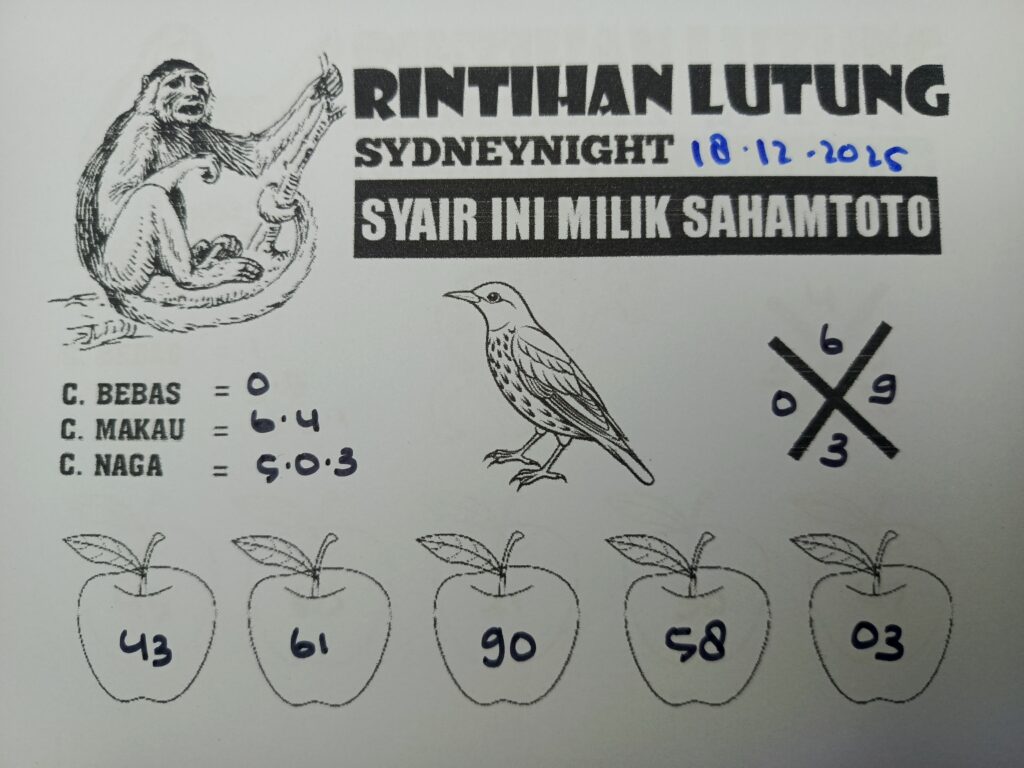 RINTIHAN LUTUNG
SYDNEYNIGHT 18.12.2025
SYAIR INI MILIK SAHAMTOTO
C. BEBAS = 0
C. MAKAU = 6.4
C. NAGA = 5.0.3
6
0 9
3
43 61 90 58 03